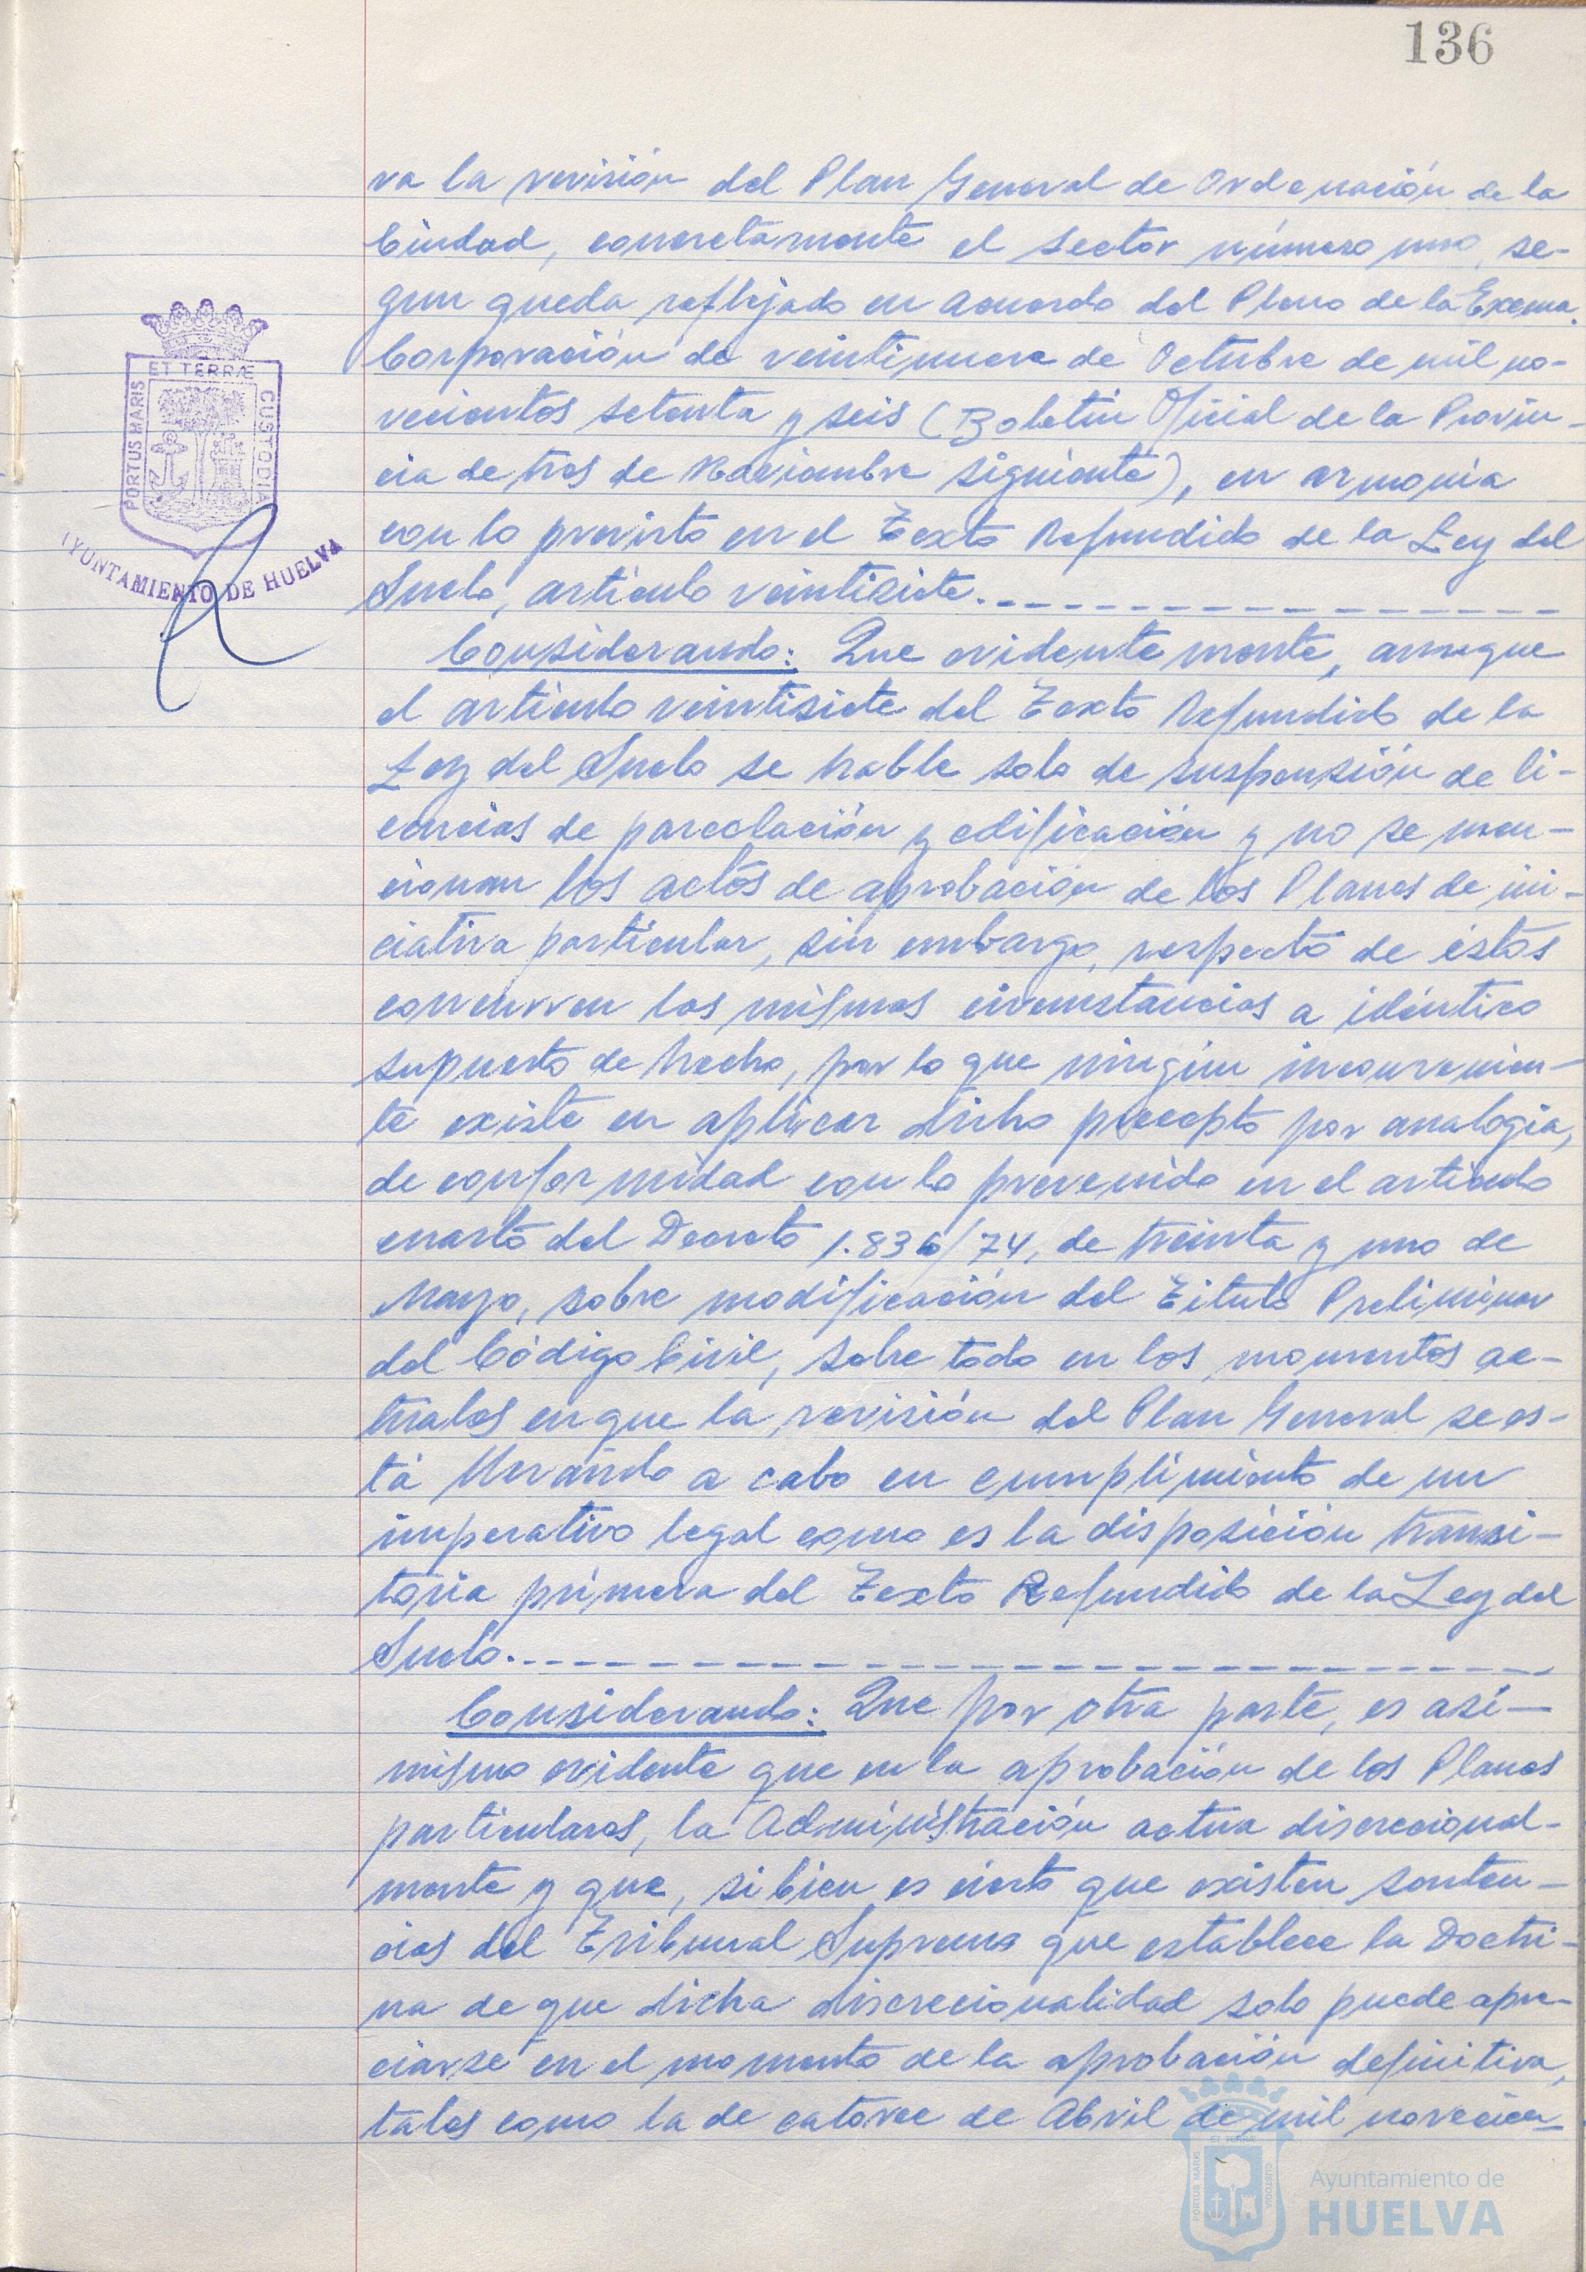 136
va la revisión del Plan General de Ordenación de la
Ciudad, concretamente el sector número uno, se-
gun queda reflejado en acuerdo del Pleno de la Excma.
Corporación de veintinueve de Octubre de mil no-
vecientos setenta y seis (Boletin Oficial de la Provin-
cia de tres de Noviembre siguiente), en armonia
con lo previsto en el Texto Refundido de la Ley del
Suelo, articulo veintisiete.
Considerando: Que evidentemente, aunque
el articulo veintisiete del Texto Refundido de la
Ley del Suelo se hable solo de suspensión de li-
cencias de parcelación y edificación y no se men-
cionan los actos de aprobación de los Planes de ini-
ciativa particular, sin embargo, respecto de éstos
concurren las mismas circunstancias a idéntico
supuesto de hecho, por lo que ningún inconvenien-
te existe en aplicar dicho precepto por analogia,
de conformidad con lo prevenido en el articulo
cuarto del Decreto 1.836/74, de treinta y uno de
Mayo, sobre modificación del Titulo Preliminar
del Código Civil, sobre todo en los momentos ac-
tuales en que la revisión del Plan General se es-
tá llevando a cabo en cumplimiento de un
imperativo legal como es la disposición transi-
toria primera del Texto Refundido de la Ley del
Suelo.
Considerando: Que por otra parte, es asi-
mismo evidente que en la aprobación de los Planes
particulares, la Administración actua discrecional-
mente y que, si bien es cierto que existen senten-
cias del Tribunal Supremo que establece la Doctri-
na de que dicha discrecionalidad solo puede apre-
ciarse en el momento de la aprobación definitiva,
tales como la de catorce de Abril de mil novecien-
ET TERRÆ
PORTUS MARIS
CUSTODIA
AYUNTAMIENTO DE HUELVA
Ayuntamiento de
HUELVA